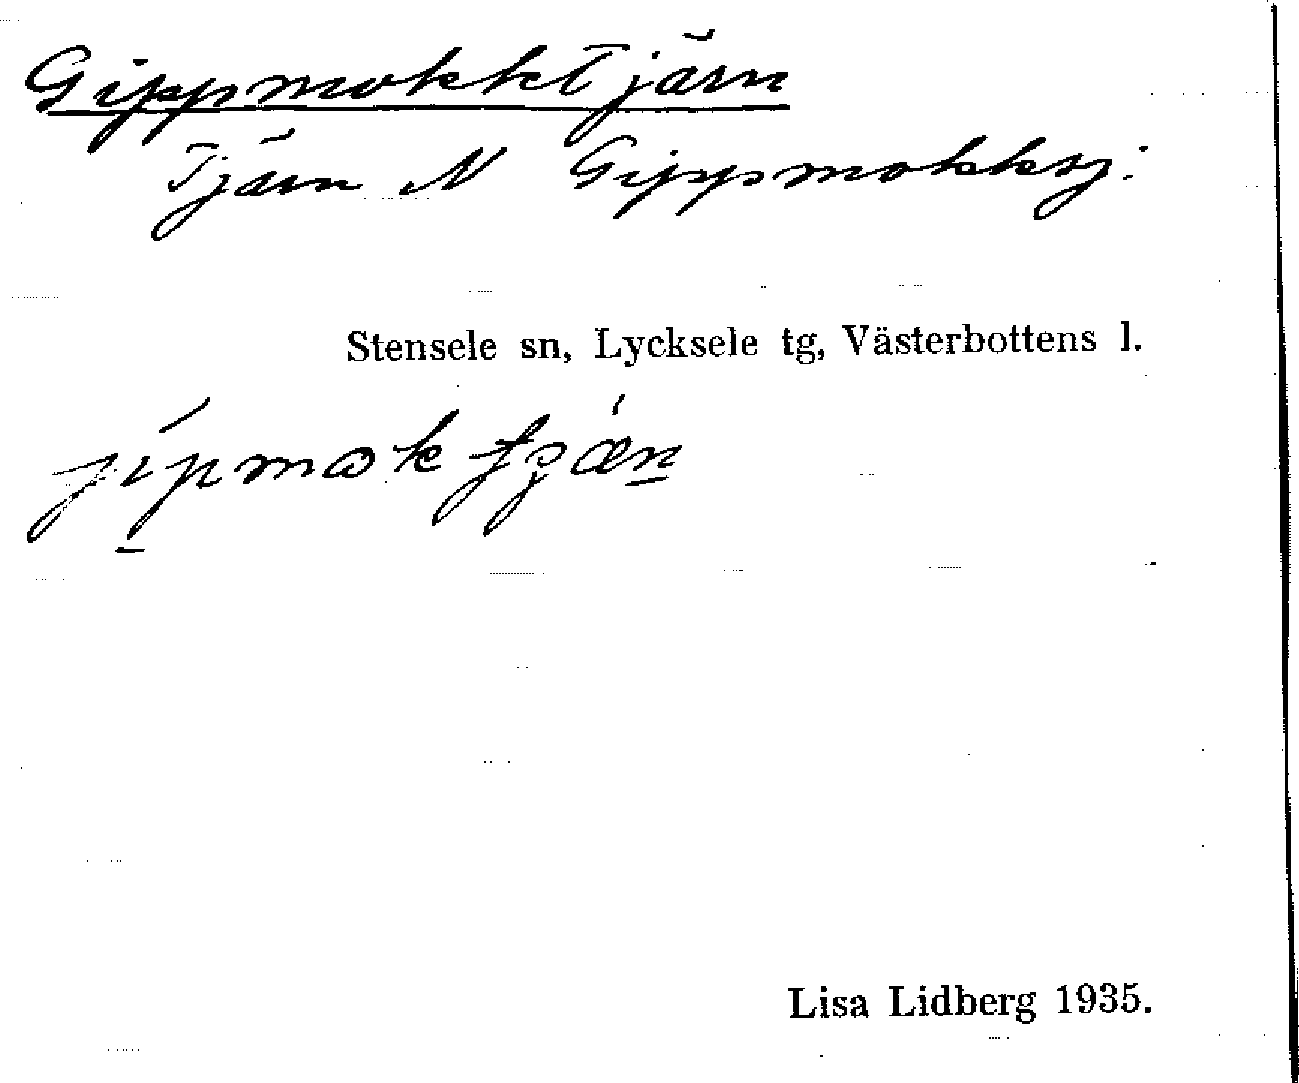 Gippmokktjärn
Tjärn N Gippmokksj.
Stensele sn, Lycksele tg, Västerbottens l.
Lisa Lidberg 1935.